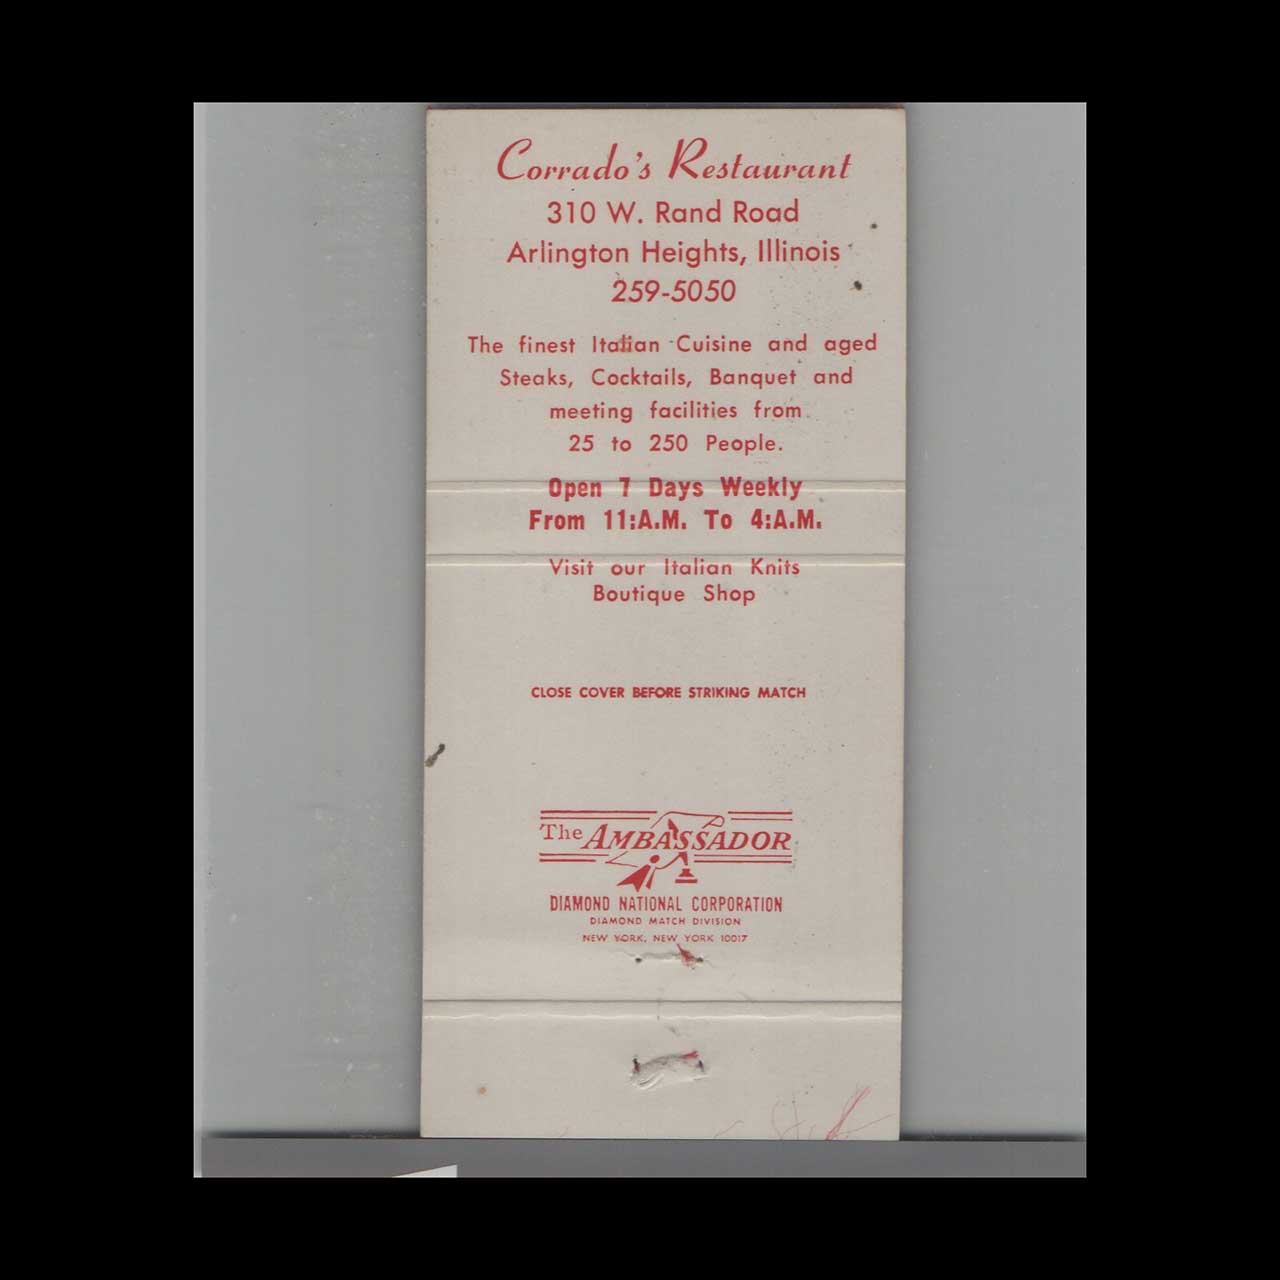 Corrado's Restaurant
310 W. Rand Road
Arlington Heights, Illinois
259-5050
The finest Italian Cuisine and aged
Steaks, Cocktails, Banquet and
meeting facilities from
25 to 250 People.
Open 7 Days Weekly
From 11:A.M. To 4:A.M.
Visit our Italian Knits
Boutique Shop
CLOSE COVER BEFORE STRIKING MATCH
The AMBASSADOR
DIAMOND NATIONAL CORPORATION
DIAMOND MATCH DIVISION
NEW YORK, NEW YORK 10017